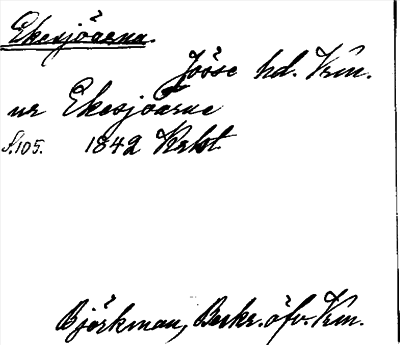 Ekesjöarna.
Jösse hd. Vrm.
ur Ekesjöarne
S. 105. 1842 Krkt.
Björkman, Beskr. öfv. Vrm.